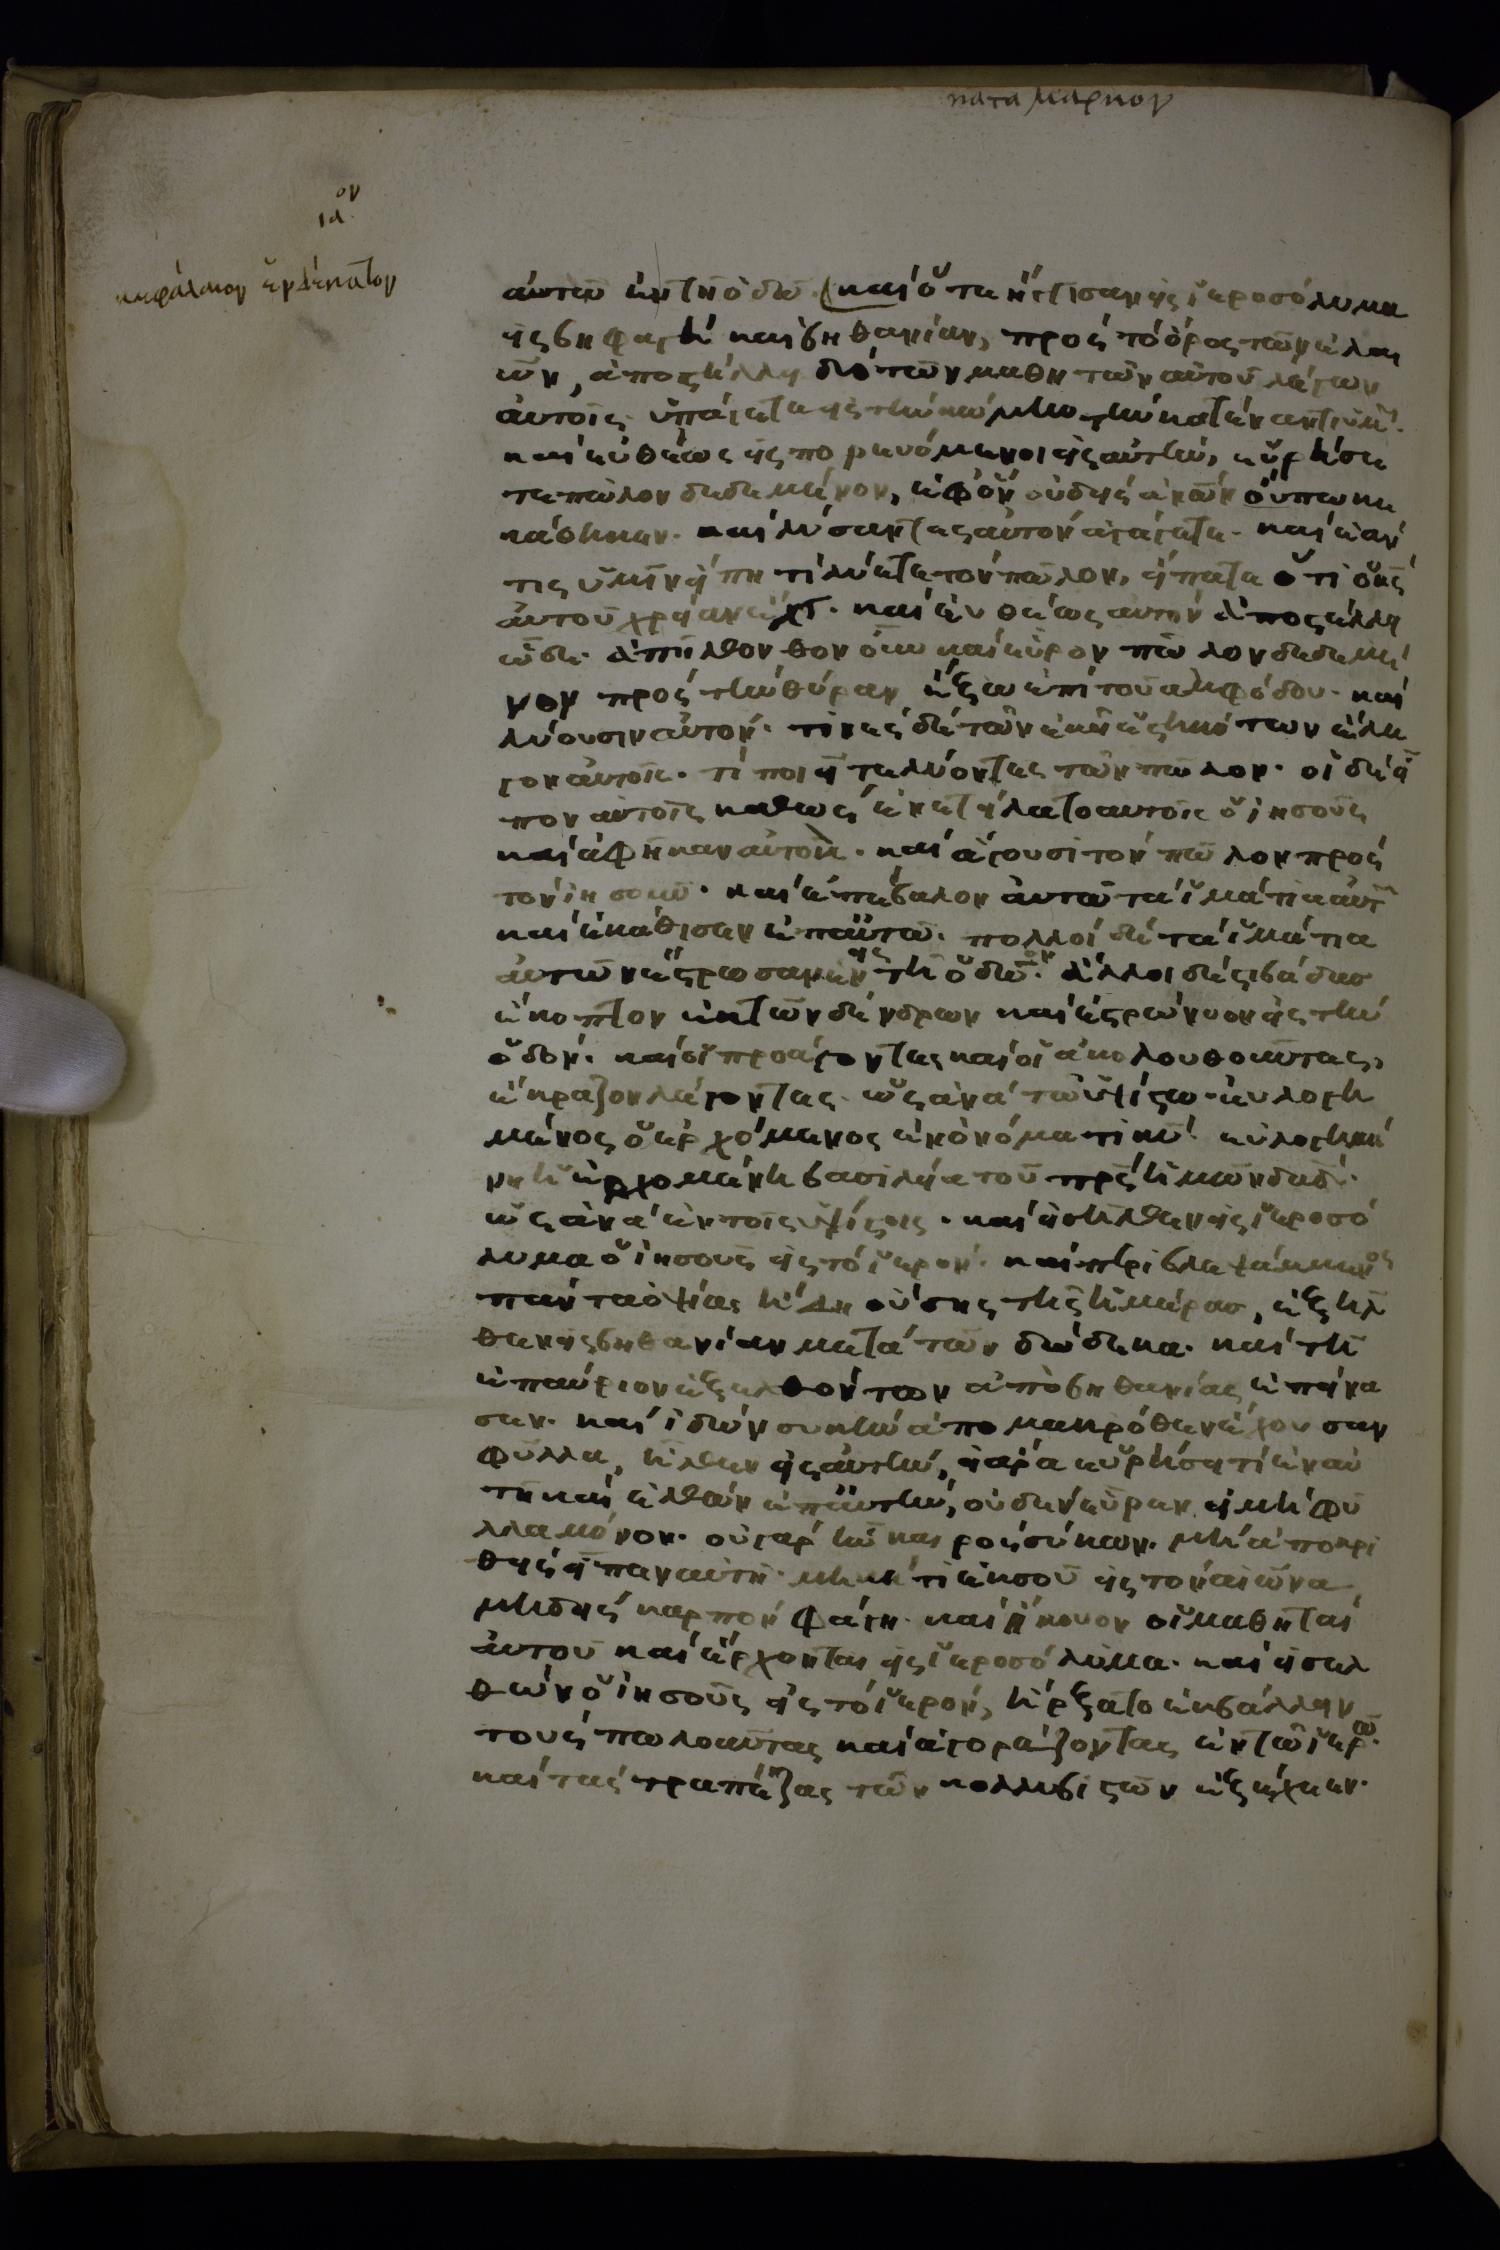 κατα μαρκον
ια ον
κεφάλαιον ἑνδέκατον
αὐτοῦ ἐν τῆ ὁδῶ. καὶ ὅτε ἤγγισαν εἰς ἱεροσόλυμα
εἰς βηφαγὴ καὶ βηθανίαν, πρὸς τὸ ὄρος τῶν ἐλαι
ῶν, ἀποστέλλει δύο τῶν μαθητῶν αὐτοῦ λέγων
αὐτοῖς. ὑπάγετε εἰς τὴν κώμην τὴν κατέναντι ὑμ.
καὶ εὐθέως εἰσπορευόμενοι εἰς αὐτὴν, εὑρήσε
τε πῶλον δεδεμένον, ἐφ ὃν οὐδεὶς ἀνῶν οὔπω κε
κάθηκεν. καὶ λύσαντες αὐτὸν ἀγάγετε. καὶ ἐάν
τις ὑμῖν εἴπη τί λύετε τὸν πῶλον, εἴπατε ὅτι ὁ κς
αὐτοῦ χρείαν ἔχει. καὶ εὐθέως αὐτὸν ἀποστέλλει
ὧδε. ἀπῆλθον θον οὖν καὶ εὗρον πῶλον δεδεμέ
νον πρὸς τὴν θύραν ἔξω ἐπὶ τοῦ ἀμφόδου. καὶ
λύουσιν αὐτόν. τινὲς δὲ τῶν ἐκεῖ ἑστηκότων ἔλε
γον αὐτοῖς. τί ποιεῖτε λύοντες τὸν πῶλον. οἱ δὲ εἶ
πον αὐτοῖς καθὼς ἐνετείλατο αὐτοῖς ὁ ἰησοῦς
καὶ ἀφῆκαν αὐτούς. καὶ ἄγουσι τὸν πῶλον πρὸς
τὸν ἰησοῦν. καὶ ἐπέβαλον αὐτῶ τὰ ἱμάτια αὐτ
καὶ ἐκάθισεν ἐπ αὐτῶ. πολλοὶ δὲ τὰ ἱμάτια
αὐτῶν ἔστρωσαν ἐν τῆ ὁδῶ. ἄλλοι δὲ στιβάδας
ἔκοπτον ἐκ τῶν δένδρων καὶ ἐστρώννυον εἰς τὴν
ὁδόν. καὶ οἱ προάγοντες καὶ οἱ ἀκολουθοῦντες,
ἔκραζον λέγοντες. ὡσανὰ τῶ ὑψίστω. εὐλογη
μένος ὁ ἐρχόμενος ἐν ὀνόματι κυ. εὐλογημέ
νη ἡ ἐρχομένη βασιλεία τοῦ πρς ἡμῶν δαδ.
ὡσανὰ ἐν τοῖς ὑψίστοις. καὶ εἰσῆλθεν εἰς ἱεροσό
λυμα ὁ ἰησοῦς εἰς τὸ ἱερόν. καὶ περιβλεψάμενος
πάντα ὀψίας ἤδη οὔσης τῆς ἡμέρας, ἐξῆλ
θεν εἰς βηθανίαν μετὰ τῶν δώδεκα. καὶ τῆ
ἐπαύριον ἐξελθόντων ἀπὸ βηθανίας ἐπείνα
σεν. καὶ ἰδὼν συκὴν ἀπο μακρόθεν ἔχουσαν
φύλλα, ἦλθεν εἰς αὐτὴν, εἰ ἄρα εὑρήσει τὶ ἐν αὐ
τῆ καὶ ἐλθὼν ἐπ αὐτὴν, οὐδὲν εὗρεν εἰ μὴ φύ
λλα μόνον. οὐ γὰρ ἦν καιρὸς σύκων. μὴ ἀποκρι
θεὶς εἶπεν αὐτῆ. μηκέτι ἐκ σοῦ εἰς τὸν αἰῶνα
μηδεὶς καρπὸν φάγη. καὶ ἤκουον οἱ μαθηταὶ
αὐτοῦ καὶ ἔρχονται εἰς ἱεροσόλυμα. καὶ εἰσελ
θὼν ὁ ἰησοῦς εἰς τὸ ἱερὸν, ἤρξατο ἐκβάλλειν
τοὺς πωλοῦντας καὶ ἀγοράζοντας ἐν τῶ ἱερῶ.
καὶ τὰς τραπέζας τῶν κολλυβιστῶν ἐξέχεεν.